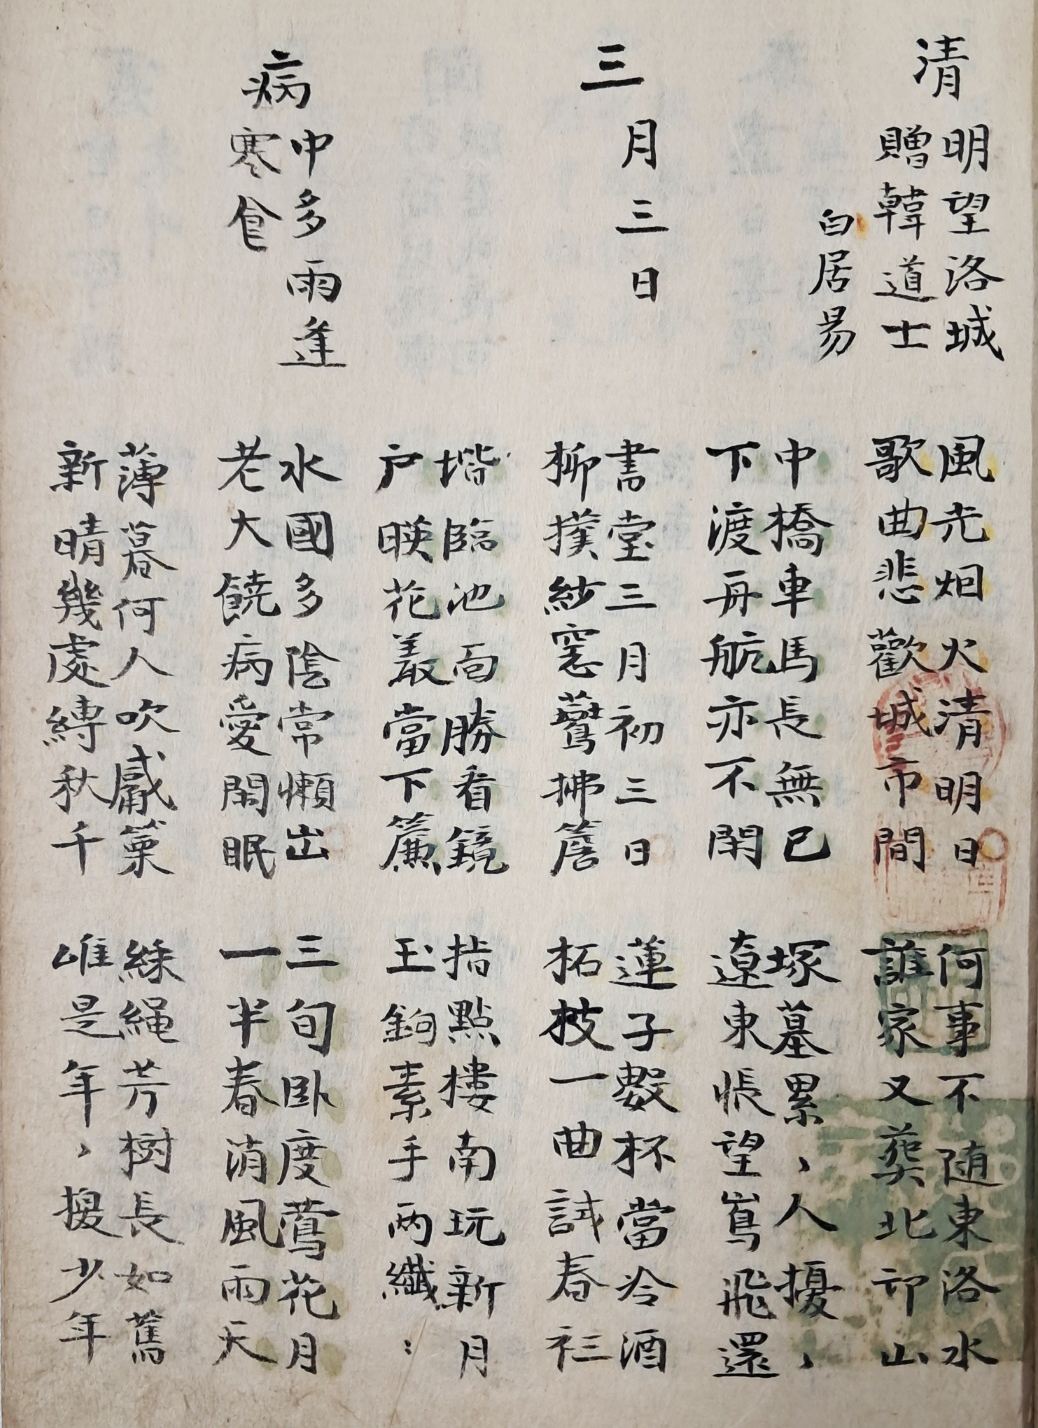 清明望洛城
贈韓道士
白居易
風光烟火清明日
歌曲悲歡城市間
何事不随東洛水
誰家又葬北邙山
中橋車馬長無已
下渡舟航亦不閑
塚墓累〻人擾〻
遼東悵望鶴飛還
三月三日
畵堂三月初三日
柳撲紗窓鷰拂簷
蓮子數杯嘗冷酒
柘枝一曲試春衫
堦臨池面勝看鏡
户暎花叢當下簾
指點樓南玩新月
玉鉤素手兩纖〻
病中多雨逢
寒食
水國多陰常懶出
老大饒病愛閑眠
三旬卧度鶯花月
一半春消風雨天
薄暮何人吹觱篥
新晴幾處縛秋千
綵繩芳樹長如舊
唯是年〻換少年